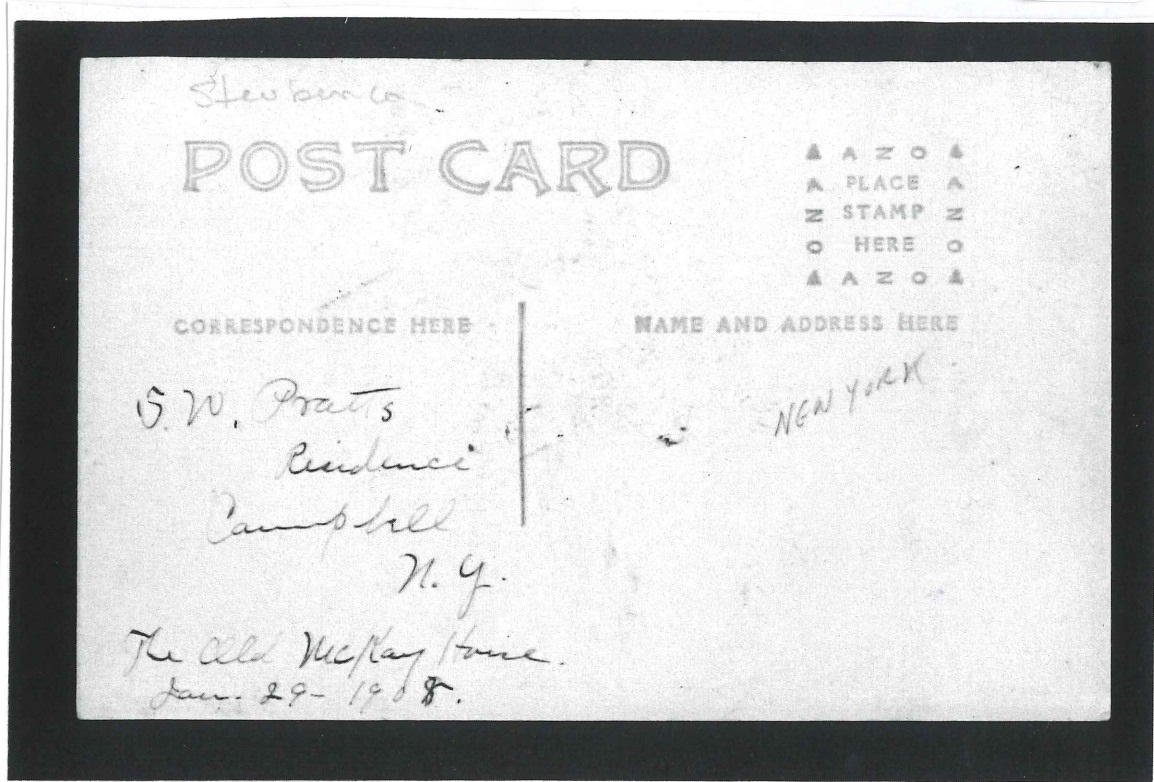 Steuben Co
POST CARD
AZO
PLACE
STAMP
HERE
AZO
AZO
AZO
CORRESPONDENCE HERE
NAME AND ADDRESS HERE
NEW YORK
S.W. Pratts
Residence
Campbell
N.Y.
The Old McKay House.
Jan. 29 - 1908.